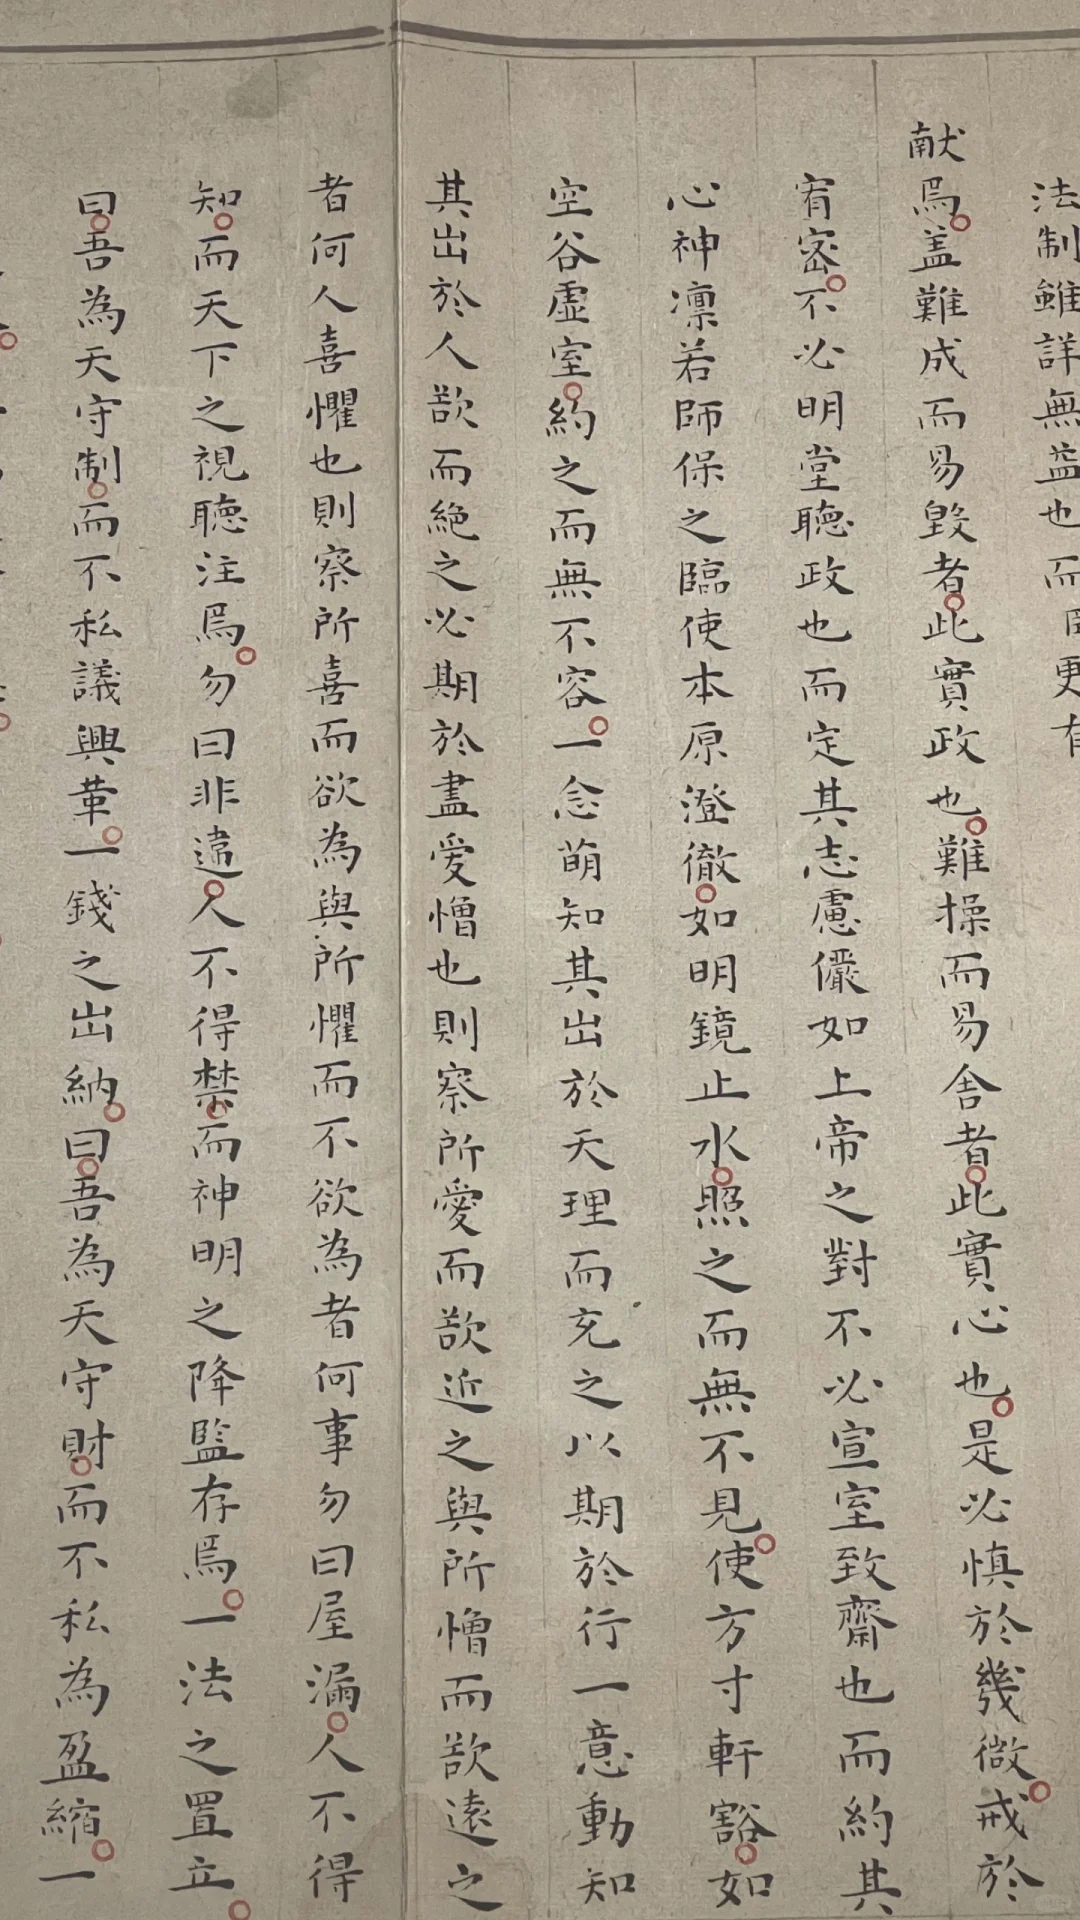 法制雖詳無益也而臣更有
献焉蓋難成而易毀者此實政也難操而易舍者此實心也是必慎於幾微戒於
宥密不必明堂聽政也而定其志慮儼如上帝之對不必宣室致齋也而約其
心神凛若師保之臨使本原澄徹如明鏡止水照之而無不見使方寸軒豁如
空谷虛室約之而無不容一念萌知其出於天理而充之以期於行一意動知
其出於人欲而絕之必期於盡愛憎也則察所愛而欲近之與所憎而欲遠之
者何人喜懼也則察所喜而欲為與所懼而不欲為者何事勿曰屋漏人不得
知而天下之視聽注焉勿曰非違人不得禁而神明之降監存焉一法之置立
曰吾為天守制而不私議興革一錢之出納曰吾為天守財而不私為盈縮一